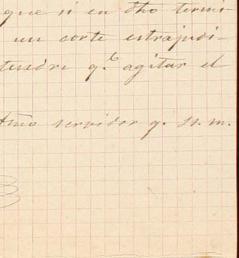 que si en dho termi-
un corte estrajudi-
tendré q.e agitar el
Atto servidor q. s. m.